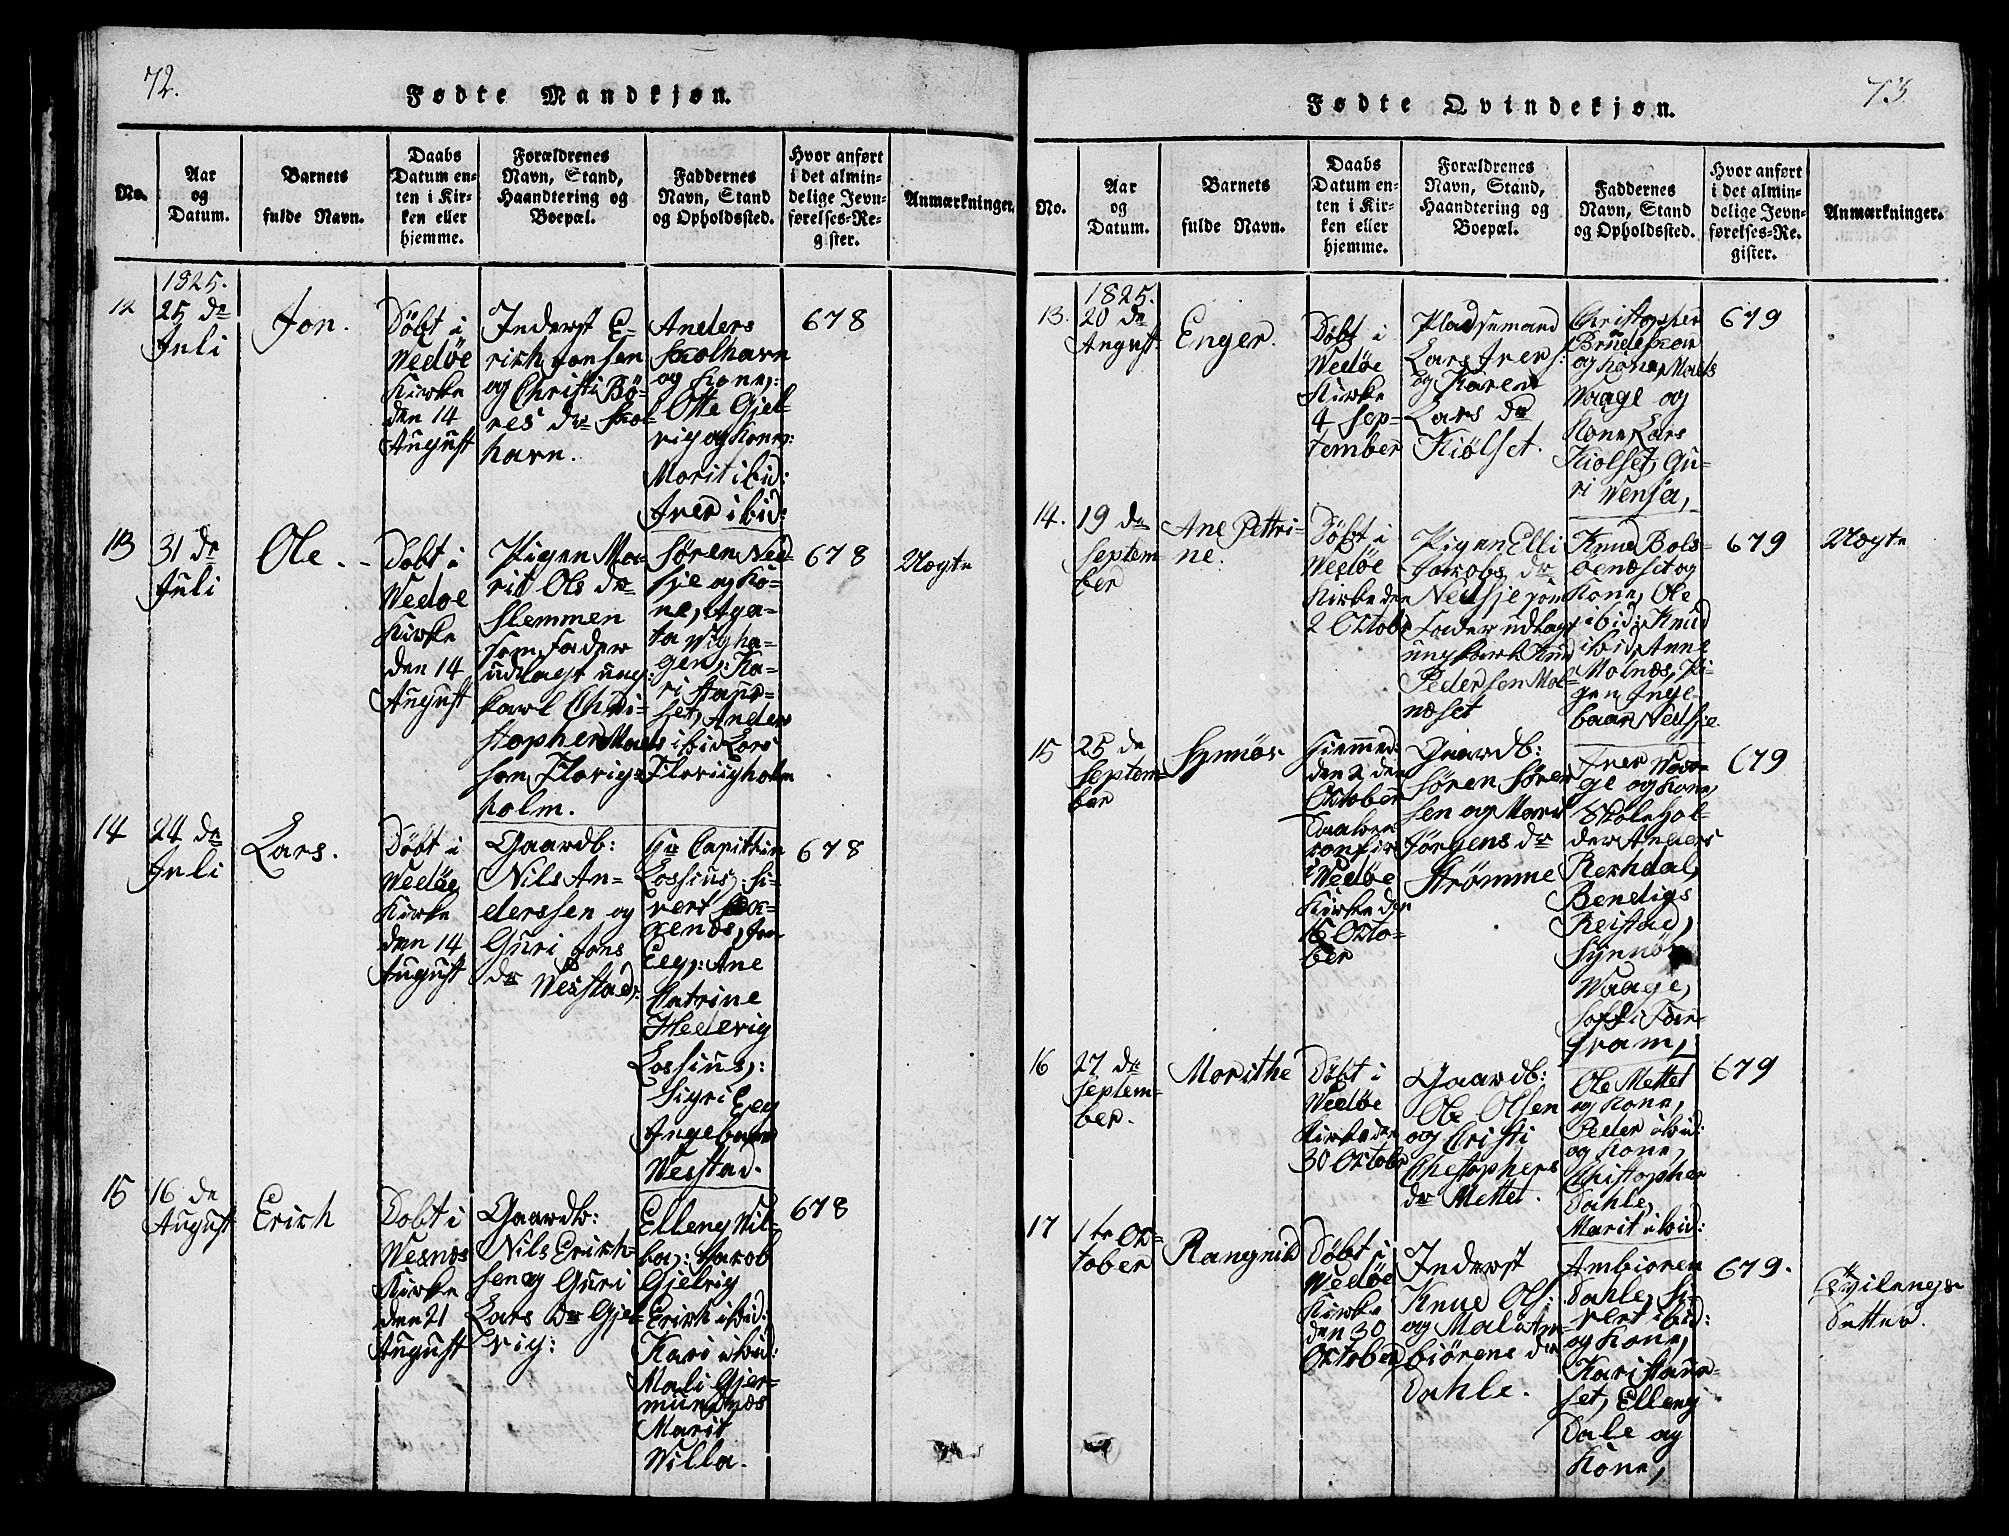 72.
Fødte Mandkjøn.
No.
Aar
og
Datum.
Barnets
fulde Navn.
Daabs
Datum en-
ten i Kir-
ken eller
hjemme.
Forældrenes
Navn, Stand,
Haandtering og
Boepæl.
Faddernes
Navn, Stand
og Opholdssted.
Hvor anført
i det almin-
delige Jevn-
førelses-Re-
gister.
Anmærkninger.
12
1825.
25 de
Juli
Jon.
Döbt i
Wedøe
Kirke
den 14
August
Inderst E-
rich Jonsen
og Christi Bö-
res dr Skol-
havn.
Anders
Skolhavn
og Kone,:
Otte Gjel-
vig og Kone:
Marit ibid:
Iver ibid:
678
13
31 de
Juli
Ole.
Döbt i
Wedøe
Kirke
den 14
August
Pigen Ma-
rit Ols dr
Slemmen
som Fader
udlagt ung-
karl Chri-
stopher Mads
sen Florigs-
holm.
Søren Ned-
sje og Ko-
ne, Aga-
ta Wigha-
gen,: Ka-
ri Staur-
set, Anders
ibid Lars
Florugholm
678
Uægte
14
24 de
Juli
Lars.
Döbt i
Wedøe
Kirke
den 14
August
Gaardb:
Nils An-
derssen og
Guri Jons
dr Westad:
Hr Capittin
Lossius,: Si-
vert
Eeg,: Ane
Katrine
Hedevig
Lossius,:
Sigri Eeg
Ingebaar
Westad.
678
15
16 de
August
Erich
Dobt i
Wesnes
Kirke
den 21
August
Gaardb:
Nils Erich-
sen og Guri
Lars dr Gjel-
vig:
Elleng Wil-
la,: Jacob
Gjelvig
Erich ibid:
Kari ibid:
Mali Gjer-
mundnæs
Marit
Willa.
678
73.
Fødte Qvindekjøn.
No.
Aar
og
Datum.
Barnets
fulde Navn.
Daabs
Datum en-
ten i Kir-
ken eller
hjemme.
Forældrenes
Navn, Stand,
Haandtering og
Boepæl.
Faddernes
Navn, Stand
og Opholdssted.
Hvor anført
i det almin-
delige Jevn-
førelses-Re-
gister.
Anmærkninger.
13.
1825.
20 de
August.
Enger.
Döbt i
Wedøe
Kirke
4 Sep-
tember
Pladsemand
Lars Ivers:
og Karen
Lars dr
Kiölset.
Christopher
Brudeskar
og Kone, Mads
Waage og
Kone, Lars
Kiolset, Gu-
ri Wensja,
679
14.
19 de
Septem-
ber
Ane Pettri-
ne.
Döbt i
Wedøe
Kirke den
2 Octobr
Pigen Elli
Jacobs dr
Nedsje som
Fader udlagt
ungkarl Knud
Pedersen Mol-
næset
Knud Bols-
øenæset og
Kone, Ole
ibid: Knud
ibid: Anne
Molnæs, Pi-
gen Inge-
baar Nedsje
679
Uægte
15
25 de
Septem-
ber
Synnöv
Hiemmed:
den 2 den
October
Daaben
confir
i Wedøe
Kirke den
16 Octo-
ber
Gaardb:
Sören Sören
sen og Marit
Jörgens dr
Strømme
Iver Waa-
ge og Kone,
Skolehol-
der Anders
Rekdal,
Bendigs
Reistad,
Synnöv
Waage,
679
16
27 de
Septem-
ber.
Marithe
Döbt i
Wedøe
Kirke den
30 October
Gaardb:
Ole Olsen
og Cristi
Chestophers
dr Mettet.
Ole Mettet
og Kone,
Peder ibid:
og Kone,
Christopher
Dahle,
Marit ibid:
679
17
1te Oc-
tober
Rangnild
Döbt i
Wedøe
Kirke
den 30
October
Inderst
Knud Ols:
og Mali Am-
biörens dr
Dahle.
Ambioren
Dahle, Si-
vert ibid:
og Kone,
Kari Staur-
set, Elleng
Dale og
Kone,
679.
Tvilengs-
dotter.